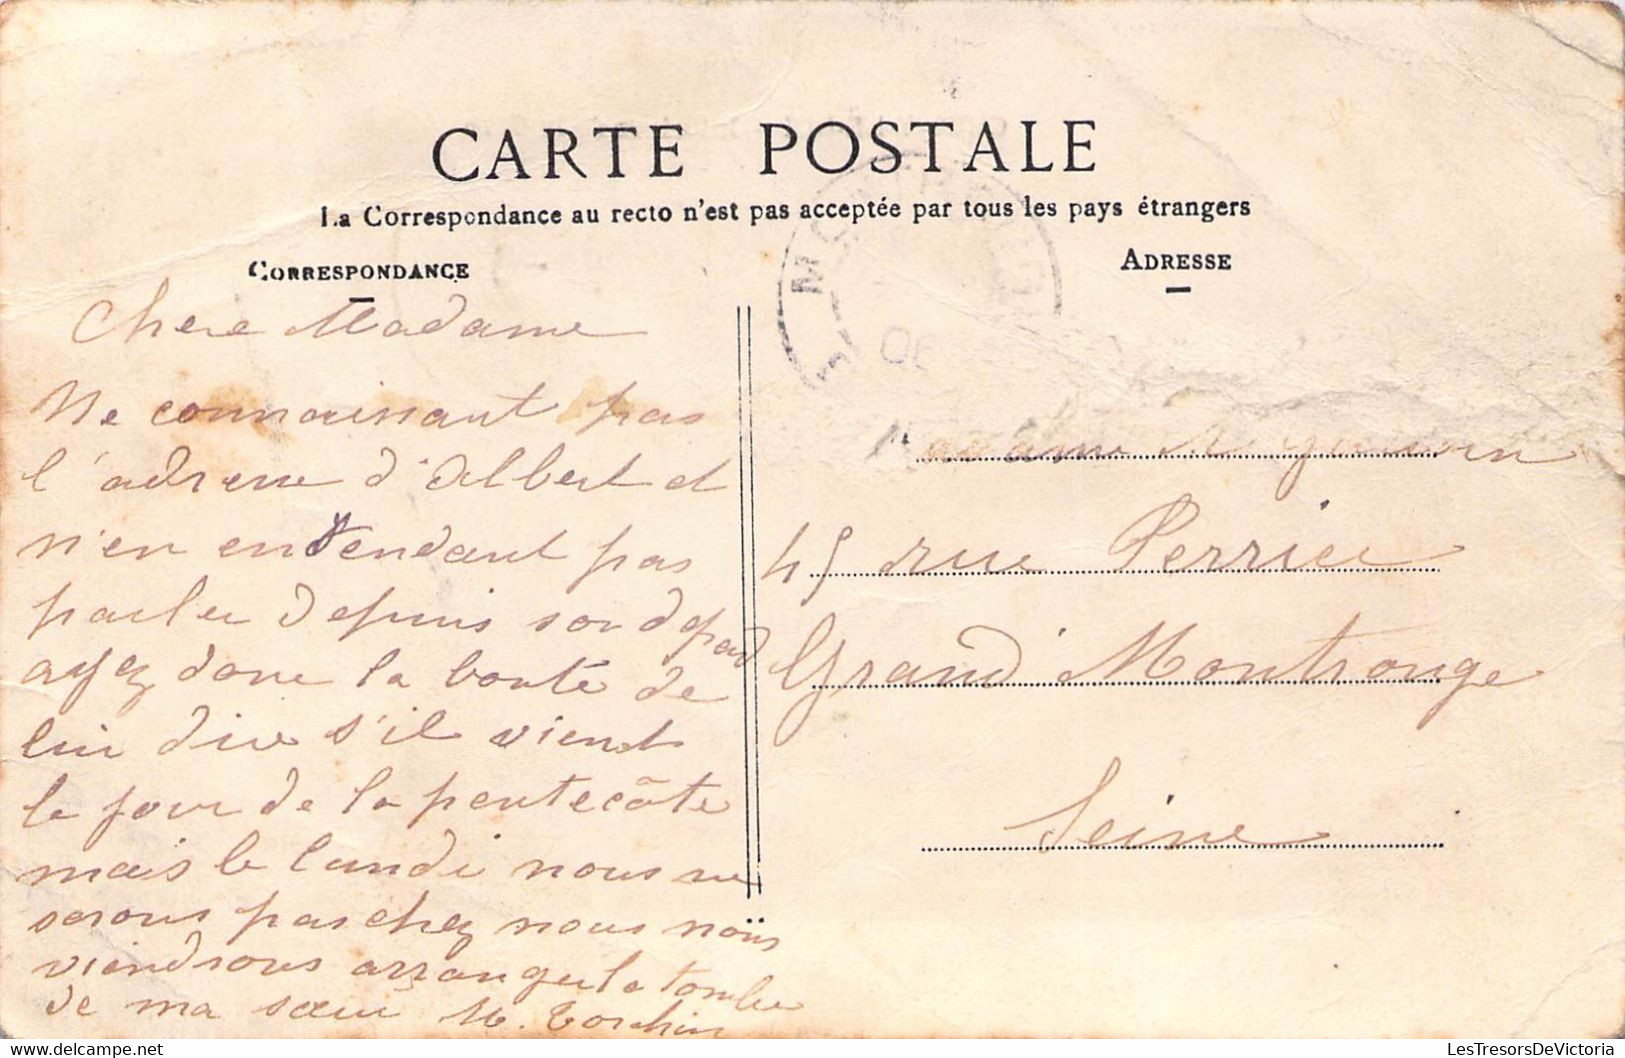 CARTE POSTALE
La Correspondance au recto n'est pas acceptée par tous les pays étrangers
CORRESPONDANCE
Chere Madame
Ne connaissant pas
l'adresse d'Albert et
n'en entendant pas
parler depuis son depart
ayez donc la bonté de
lui dire s'il vient
le jour de la pentecôte
mais le lundi nous ne
serons pas chez nous nous
viendrons arranger la tombe
de ma sœur M. Torchin
ADRESSE
Madame
45 rue Perrier
Grand Montrouge
Seine
LesTresorsDeVictoria